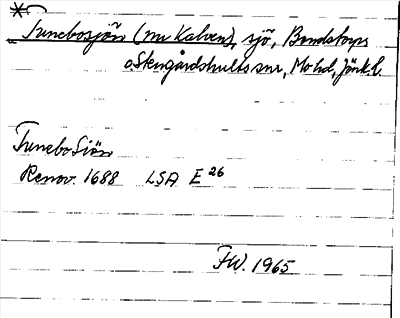 * Tunebosjön (nu Kalven), sjö, Bondstorps
o. Stengårdshults snr, Mo hd, Jönk. l.
Tunebo Siön
Renov. 1688 LSA E 26
FW. 1965